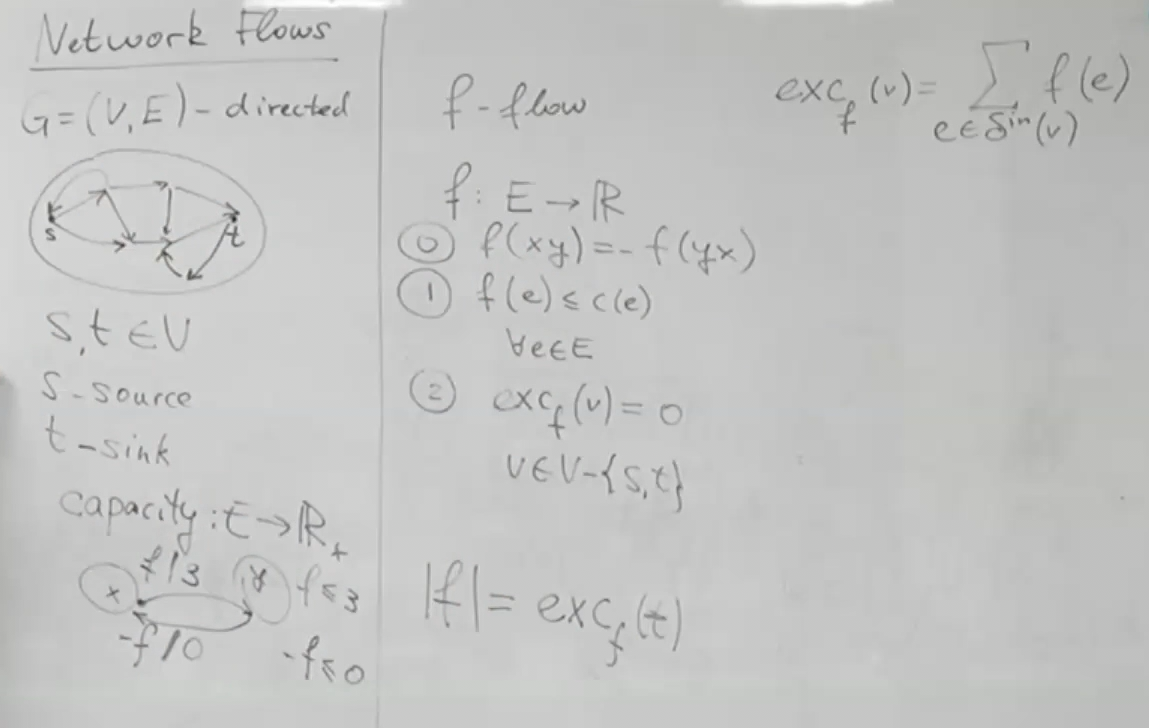 Network Flows
G=(V,E)-directed
s
t
s,t ∈V
s-source
t-sink
capacity: E→ℝ₊
f/3
x
y
f≤3
-f/0
-f≤0
f-flow
f: E→ℝ
⓪ f(xy)=-f(yx)
① f(e)≤c(e)
∀e∈E
② exc_f(v)=0
v∈V-{s,t}
|f|= exc_f(t)
exc_f(v)= ∑ f(e)
e∈δ^in(v)